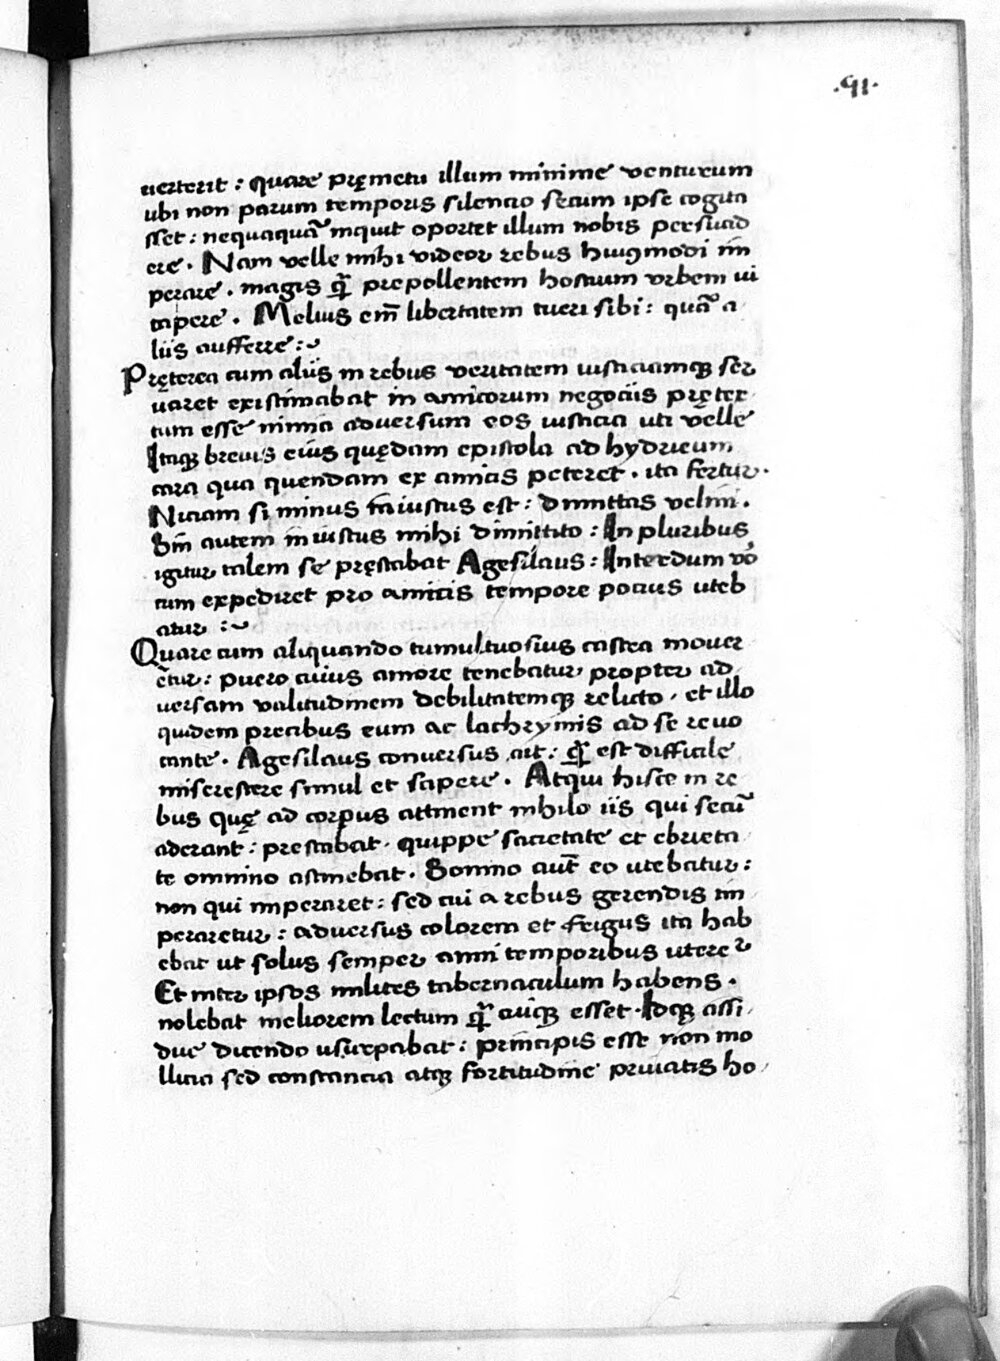 .91.
uerterit : quare pręmetu illum minime venturum
ubi non parum temporis silencio secum ipse cogita
sset : nequaquā inquit oportet illum nobis persuad
ere . Nam velle mihi videor rebus huiꝰmodi im
perare . magis qͣ̄ prepollentem hostium vrbem ui
capere . Melius em̄ libertatem tueri sibi : quā a
liis aufferre :~
Pręterea cum aliis in rebus veritatem iusticiamqꝫ ser
uaret existimabat in amicorum negociis prętex
tum esse nimia adversum eos iusticia uti velle
Itaqꝫ brevis eius quędam epistola ad hydrieum
cara qua quendam ex amicis peteret . ita fertur .
Niciam si minus iniustus est : dimittas velim .
Sin autem iniustus mihi dimittito : In pluribus
igitur talem se pręstabat Agesilaus : Interdum vō
cum expediret pro amicis tempore pocius uteb
atur :~
Quare cum aliquando tumultuosius castra mover
ētur : puero cuius amore tenebatur propter ad
uersam valitudinem debilitatemqꝫ relicto . et illo
quidem precibus eum ac lachrymis ad se revo
cante . Agesilaus conversus ait : qͣ̄ est difficile
miserestere simul et sapere . Atqui hisce in re
bus quę ad corpus attinent nihilo iis qui secū
aderant : prestabat . quippe sacietate et ebrieta
te omnino astinebat . Somno aut̄ eo utebatur :
non qui imperaret : sed cui a rebus gerendis im
peraretur : adversus colorem et frigus ita hab
ebat ut solus semper anni temporibus uteret᷑
Et inter ipsos milites tabernaculum habens .
nolebat meliorem lectum qͣ̄ cuiqꝫ esset . Idqꝫ assi
due dicendo usurpabat : principis esse non mo
llicia sed constancia atqꝫ fortitudine privatis ho